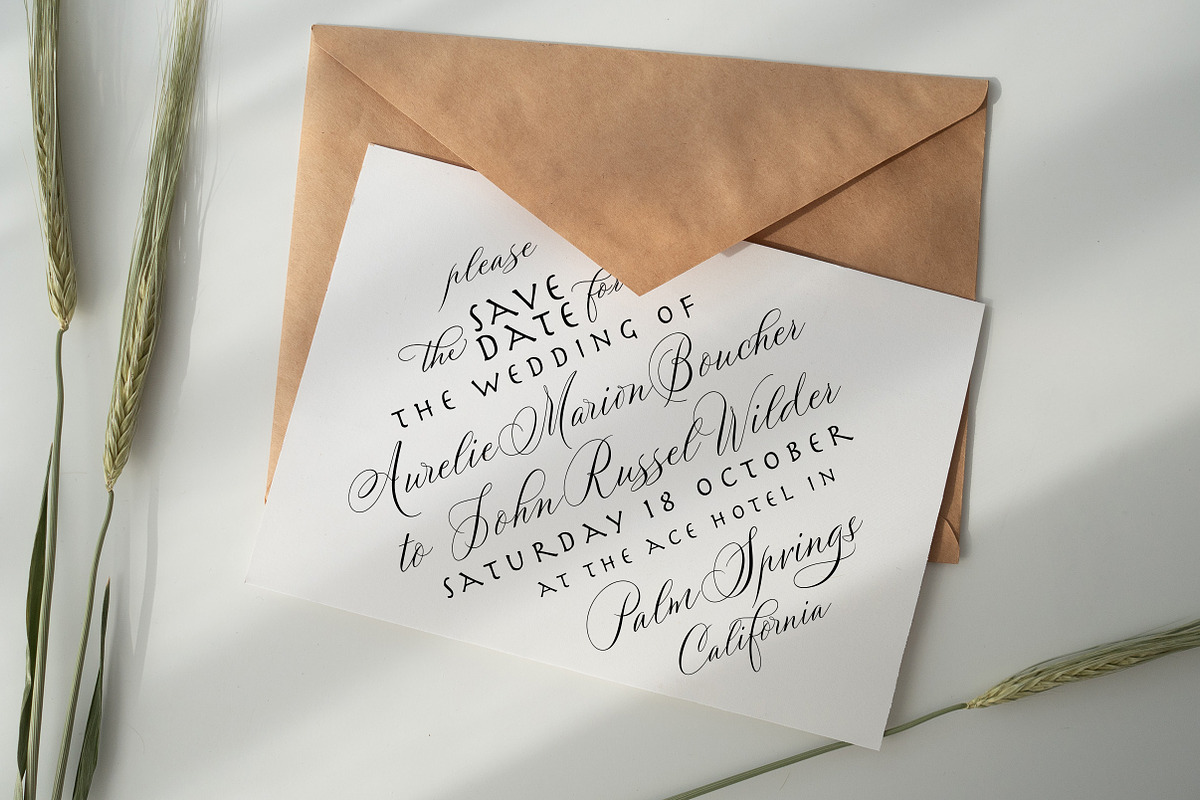 please
SAVE
the DATE for
THE WEDDING OF
Aurelie Marion Boucher
to John Russel Wilder
SATURDAY 18 OCTOBER
AT THE ACE HOTEL IN
Palm Springs
California